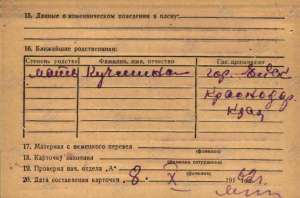 15. Данные о изменническом поведении в плену
16. Ближайшие родственники:
Степень родства Фамилия, имя, отчество Где проживает
мать Кучмиева гор. Ейск
Краснодар.
край
17. Материал с немецкого перевел
(фамилия)
18. Карточку заполнил
(фамилия сотрудника)
19. Проверил нач. отдела „А"
(фамилия)
20. Дата составления карточки „8. X 194 г.